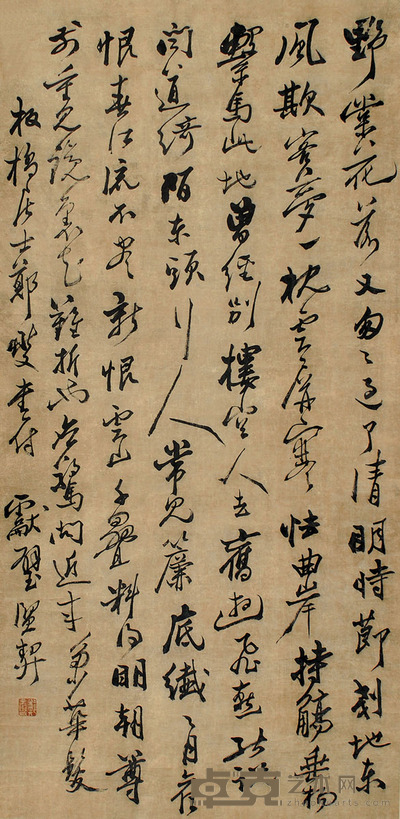 野棠花落又匆〻過了清明時節剗地東
風欺客夢一枕雲屏寒怯曲岸持觴垂楊
繫馬此地曾經別樓空人去舊遊飛燕能說
聞道綺陌東頭行人常見簾底纖〻月舊
恨春江流不盡新恨雲山千疊料得明朝尊
前重見鏡裏花難折也應驚問近來多少華髮
板橋居士鄭燮書付 獻璧賢契
卓克艺术网